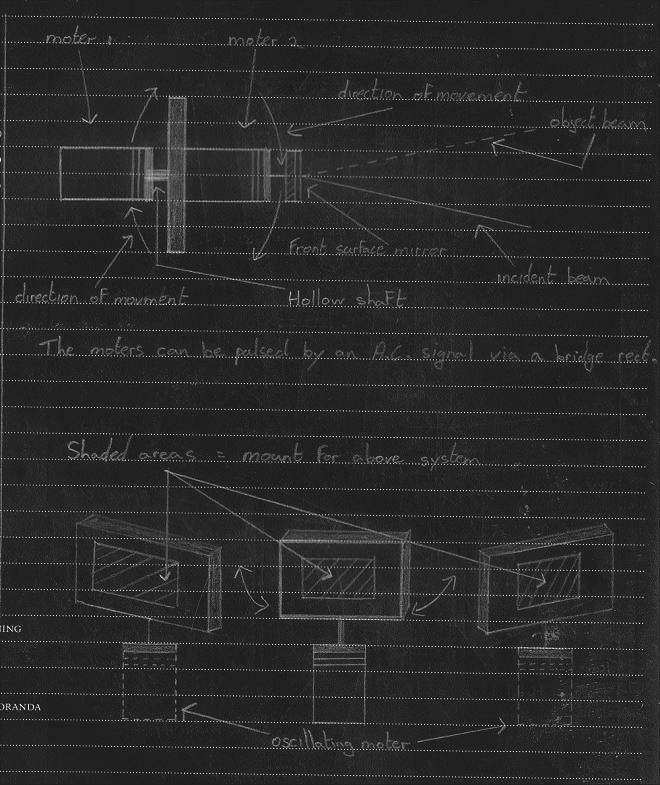 moter 1
moter 2
direction of movement
object beam
Front surface mirror
incident beam
direction of movment
Hollow shaft
The moters can be pulsed by an A.C. signal via a bridge rect.
Shaded areas = mount for above system
NING
ORANDA
oscillating moter